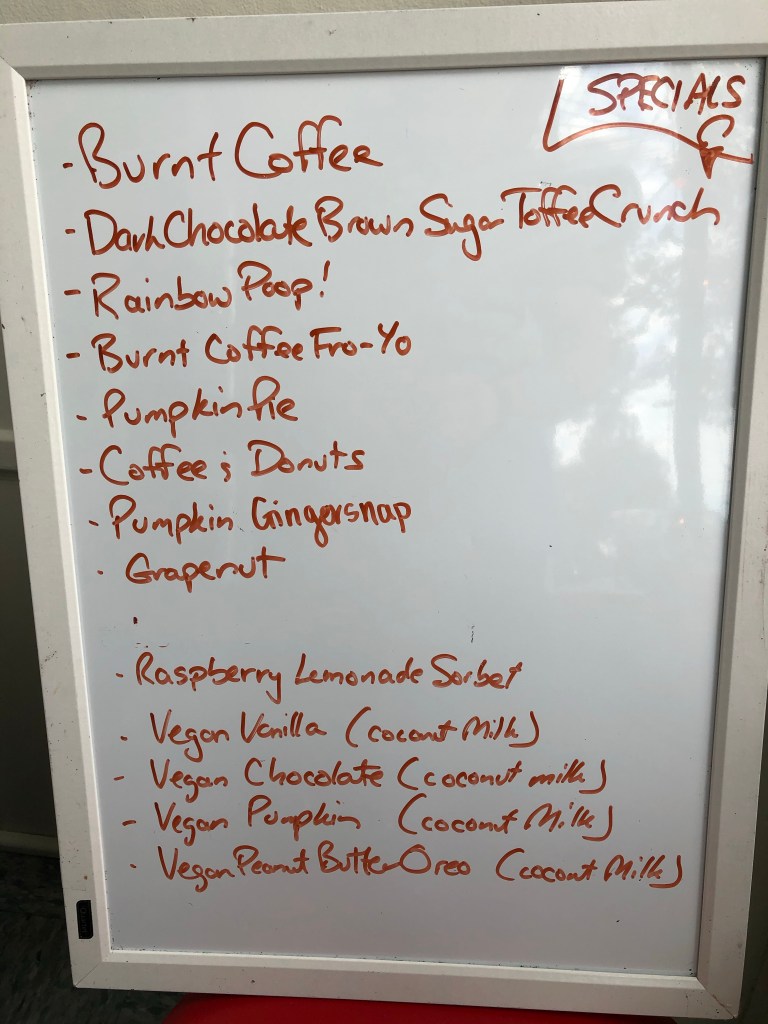 SPECIALS
- Burnt Coffee
- Dark Chocolate Brown Sugar Toffee Crunch
- Rainbow Poop!
- Burnt Coffee Fro-Yo
- Pumpkin Pie
- Coffee & Donuts
- Pumpkin Gingersnap
- Grapenut
- Raspberry Lemonade Sorbet
- Vegan Vanilla (coconut Milk)
- Vegan Chocolate (coconut milk)
- Vegan Pumpkin (coconut Milk)
- Vegan Peanut Butter Oreo (coconut Milk)